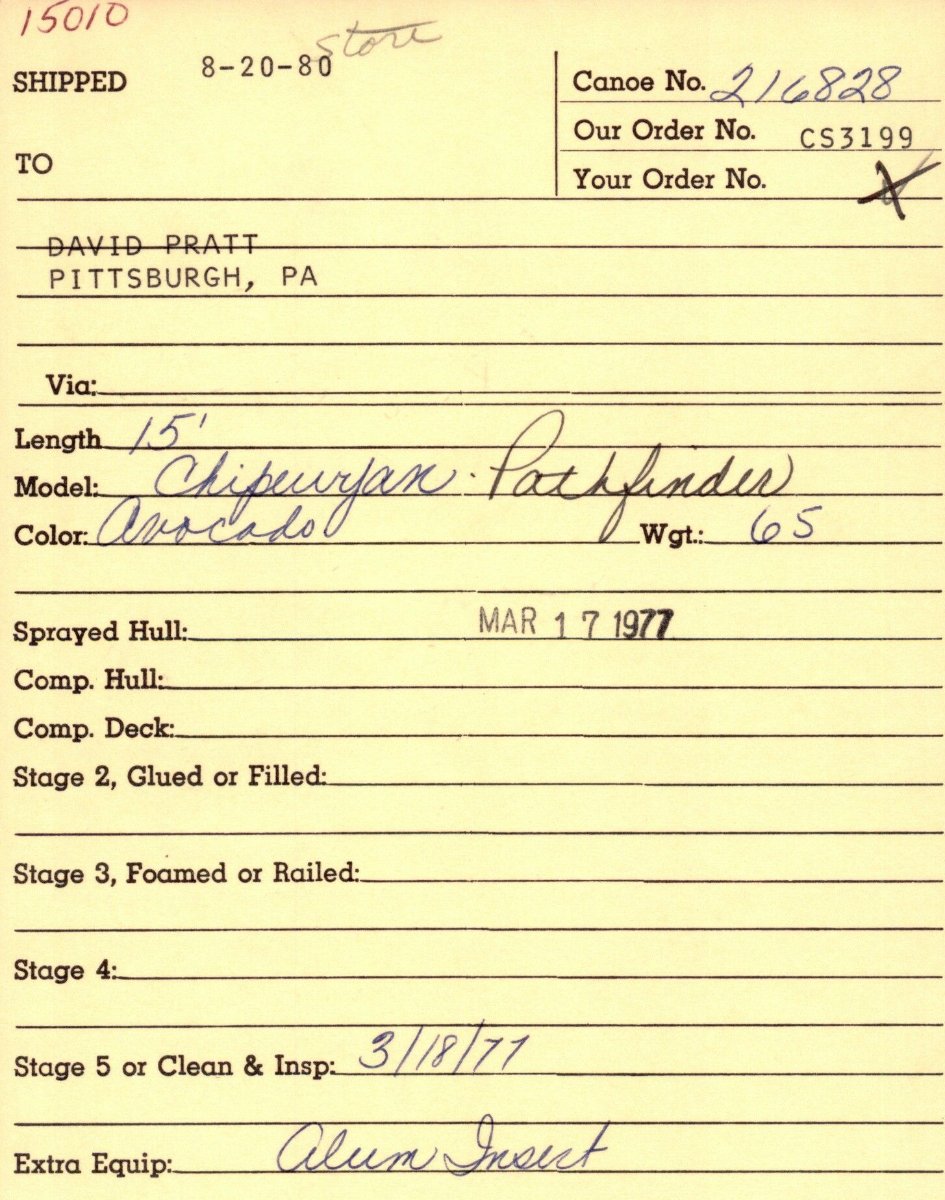 15010
store
SHIPPED 8-20-80
Canoe No. 216828
Our Order No. CS3199
TO
Your Order No.
DAVID PRATT
PITTSBURGH, PA
Via:
Length 15'
Model: Chipewyan Pathfinder
Color: Avocado Wgt.: 65
Sprayed Hull: MAR 17 1977
Comp. Hull:
Comp. Deck:
Stage 2, Glued or Filled:
Stage 3, Foamed or Railed:
Stage 4:
Stage 5 or Clean & Insp: 3/18/77
Extra Equip: Alum Insert